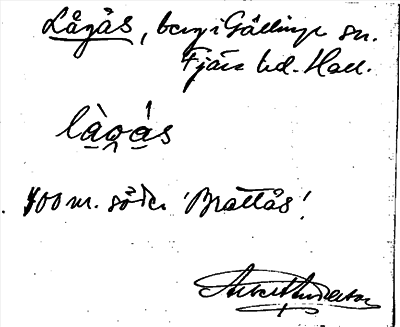 Lågås, berg i Gällinge sn.
Fjäre hd. Hall.
lågås
400 m. söder 'Brattås'.